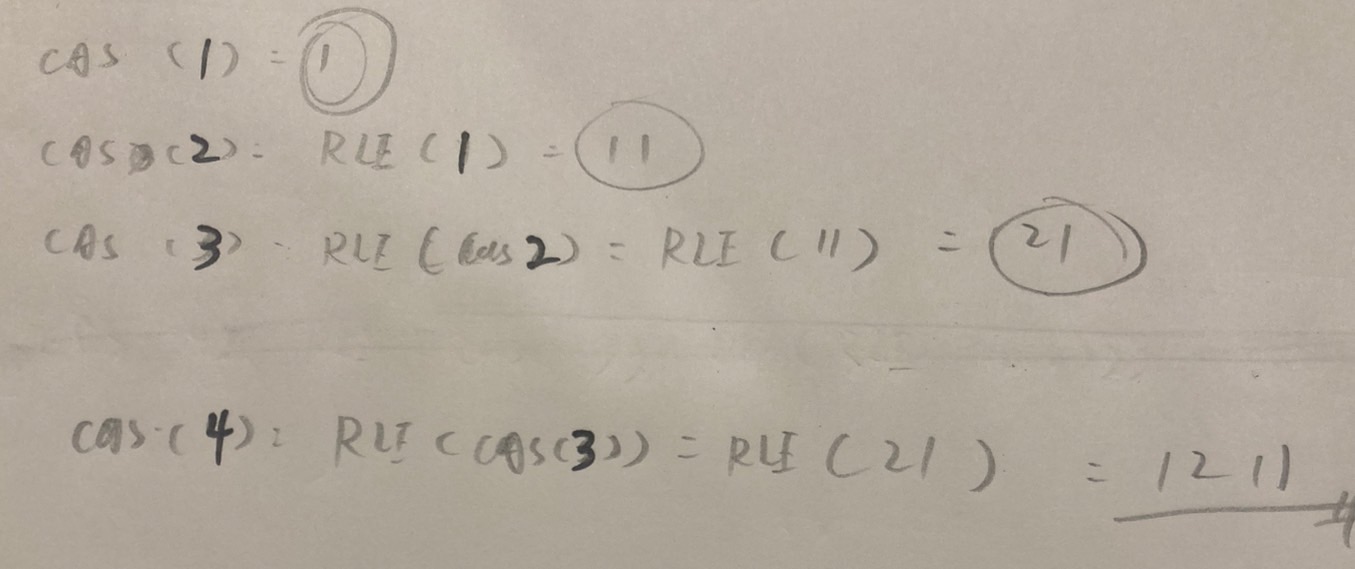 cas (1) = 1
cas (2) = RLE (1) = 11
cas (3) = RLE (cas 2) = RLE (11) = 21
cas (4) = RLE (cas(3)) = RLE (21) = 1211